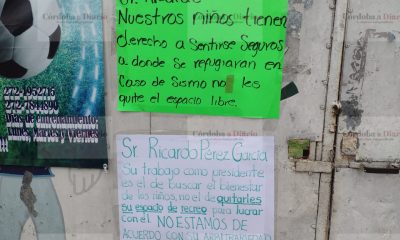 Córdoba a Diario
Córdoba a Diario
Córdoba a Diario
Nuestros niños tienen
derecho a Sentirse Seguros
a donde Se refugiaran en
Caso de Sismo no les
quite el espacio libre.
272-1952715
272-7844890
Dias de entrenamiento
Lunes, Martes y Viernes
Córdoba a Diario
Córdoba a Diario
Córdoba a Diario
Sr. Ricardo Pérez García
Su trabajo como presidente
es el de buscar el bienestar
de los niños, no el de quitarles
su espacio de recreo para lucrar
con el. NO ESTAMOS DE
ACUERDO CON SU ARBITRARIEDAD